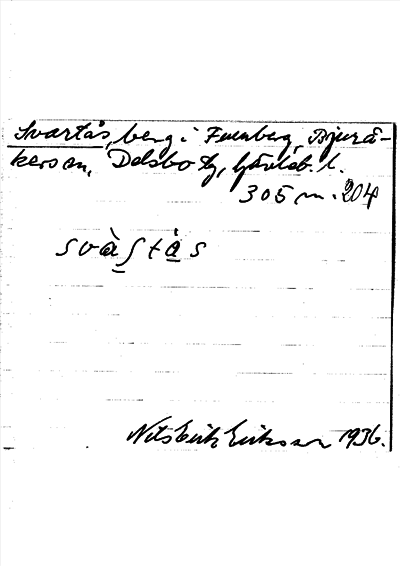 Svartås, berg i Furuberg, Bjurå-
kers sn, Delsbo tg, Gävleb. l.
305 m. 204
svàʃtås
Nils Erik Eriksson 1936.